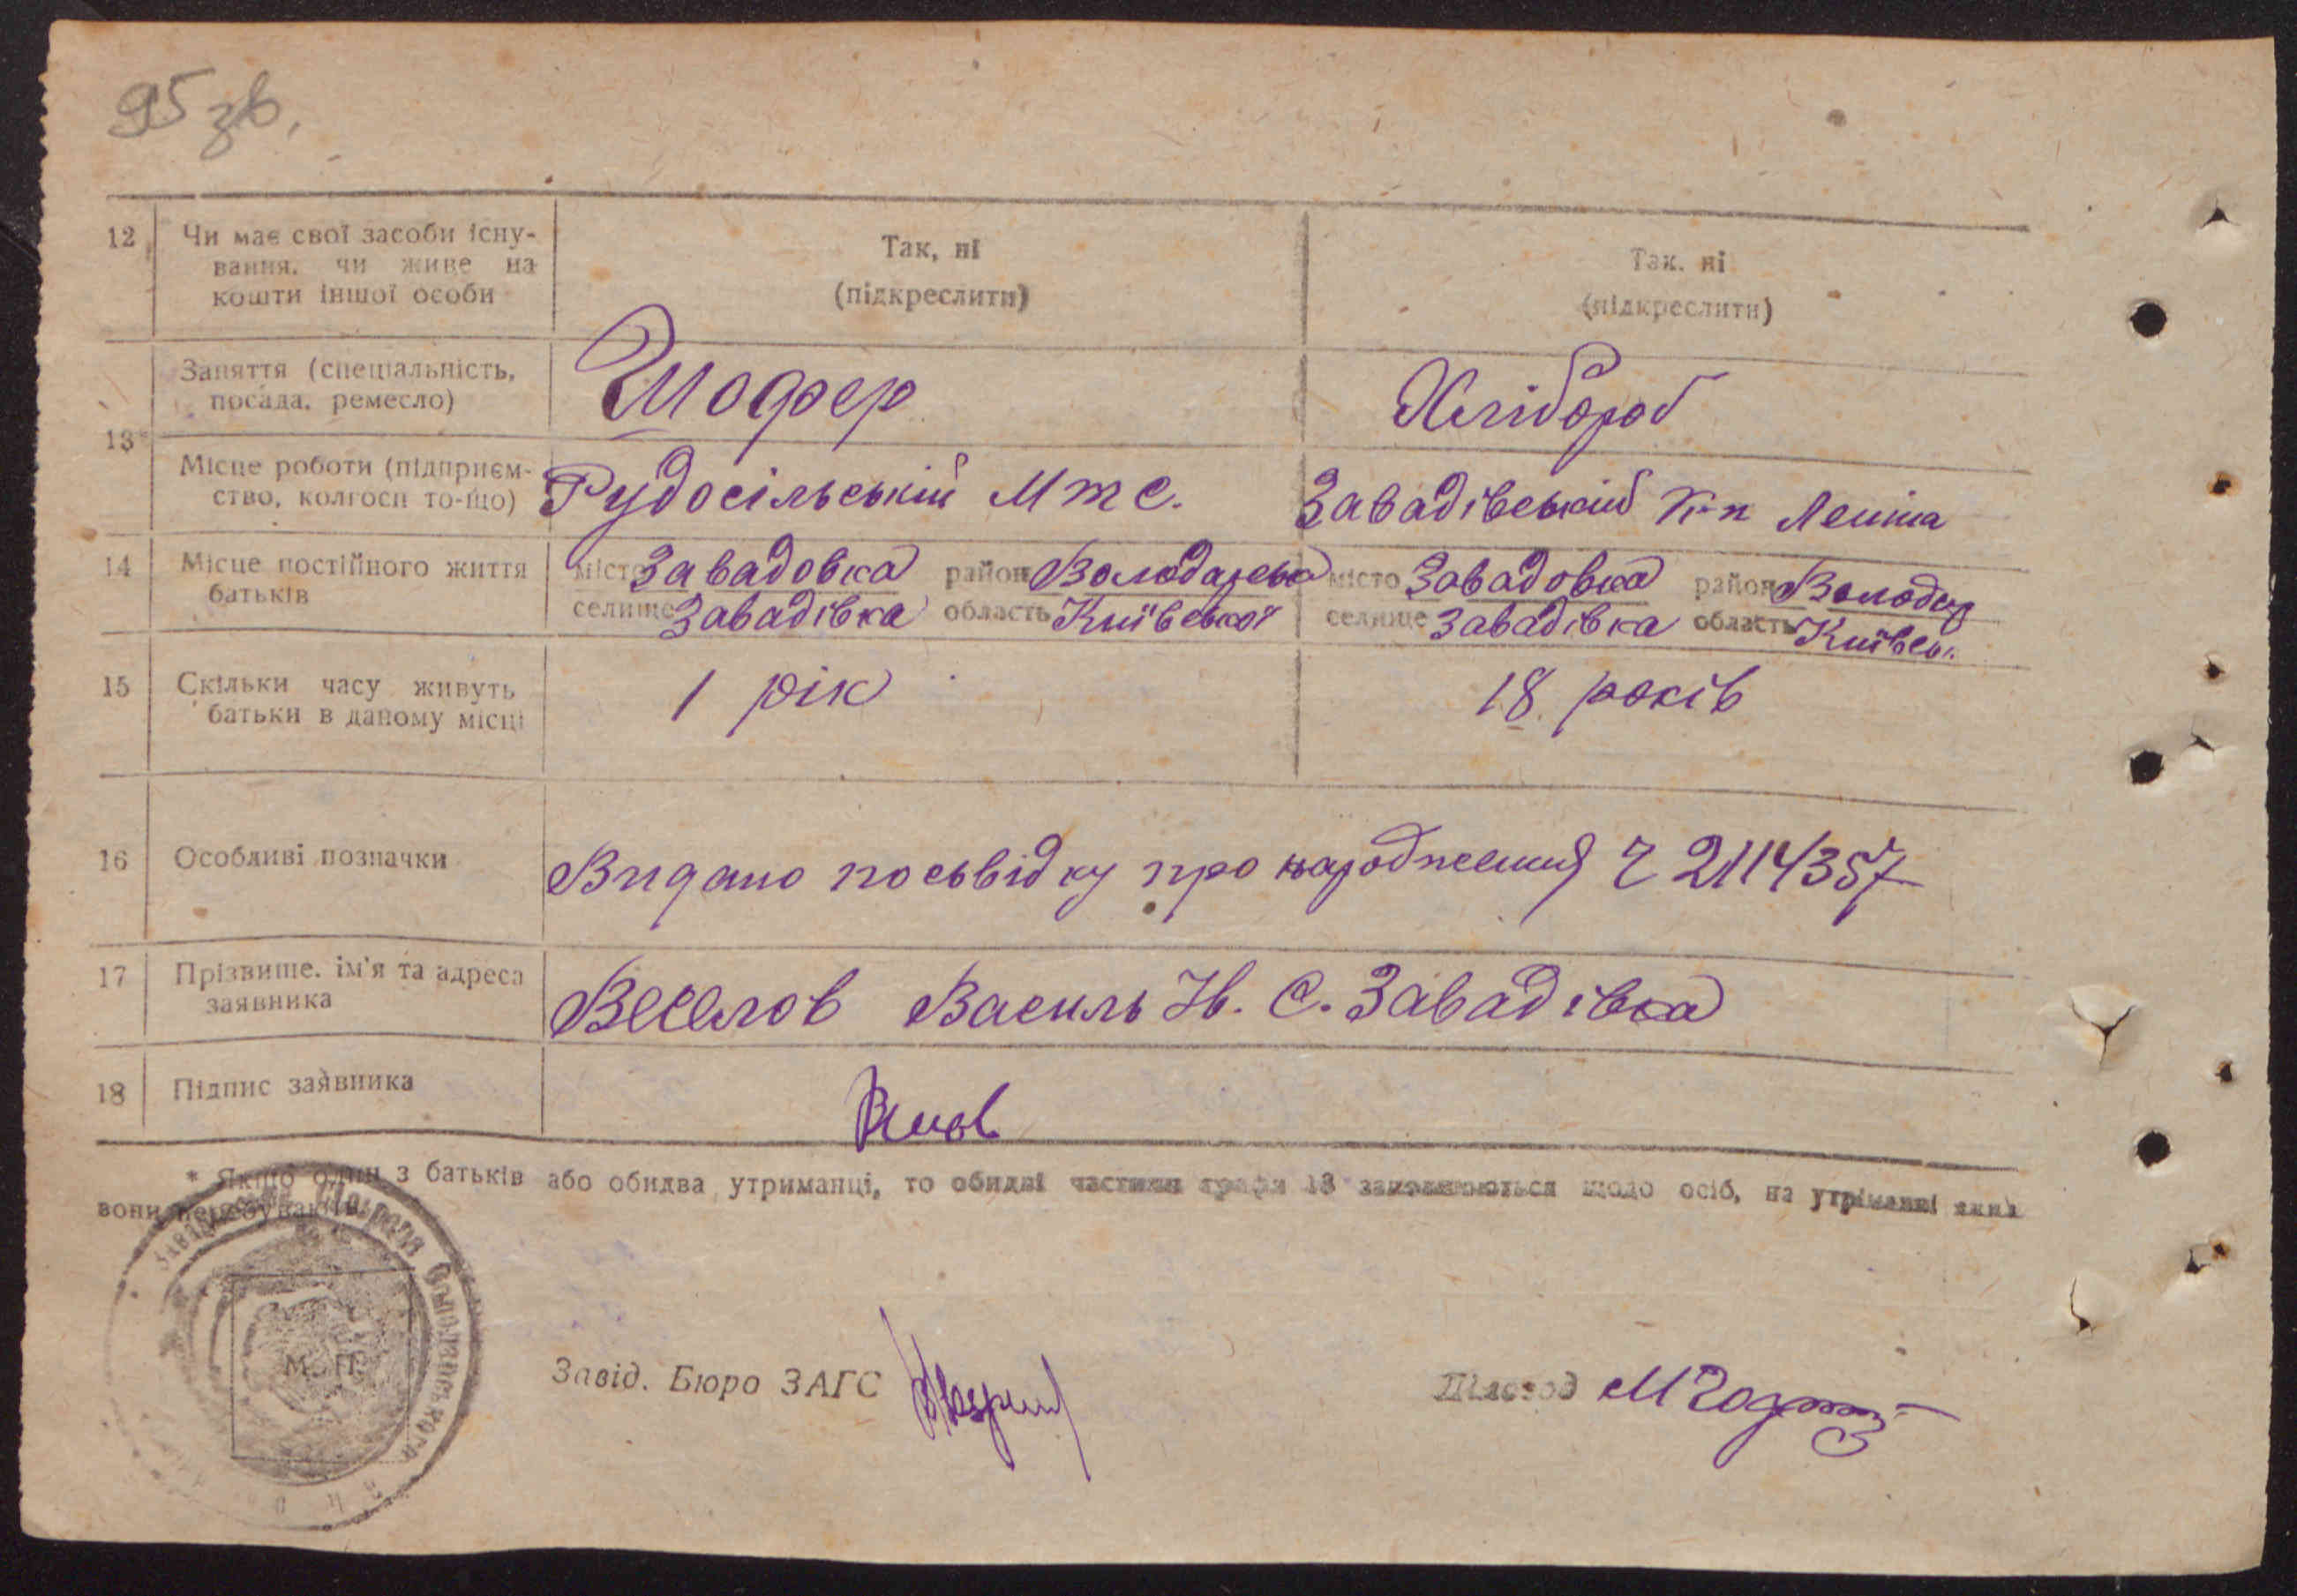 95 зв.
12 Чи має свої засоби існу- Так, ні Так. ні
вання, чи живе на (підкреслити) (підкреслити)
кошти іншої особи
13 Заняття (спеціальність, Шофер Хлібороб
посада, ремесло)
Місце роботи (підприєм- Рудосільський Мтс. Завадівський К-п Леніна
ство, колгосп то-що)
14 Місце постійного життя місто Завадовка район Володарська місто Завадовка район Володар
батьків селище Завадівка область Київської селище Завадівка область Київськ.
15 Скільки часу живуть 1 рік 18 років
батьки в даному місці
16 Особливі позначки Видано посьвідку про народження Ч 2114357
17 Прізвище, ім'я та адреса Веселов Василь Ів. С. Завадівка
заявника
18 Підпис заявника
* Якщо один з батьків або обидва утриманці, то обидві частини графи 13 заповнюються щодо осіб, на утриманні яких
вони перебувають.
М. П.
Завід. Бюро ЗАГС Діловод